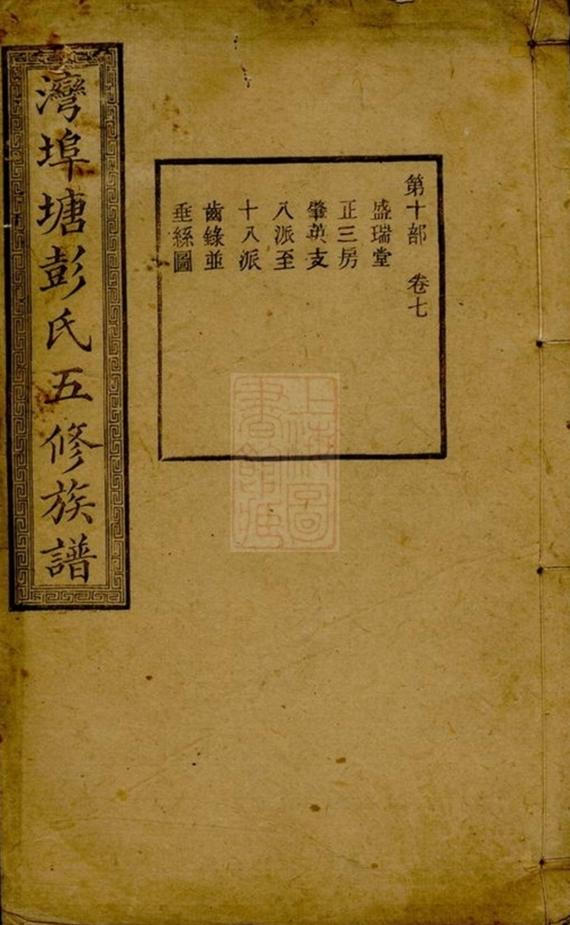 灣埠塘彭氏五修族譜
第十部 卷七
盛瑞堂
正三房
肇英支
八派至
十八派
齒錄並
垂絲圖
上海圖書館藏